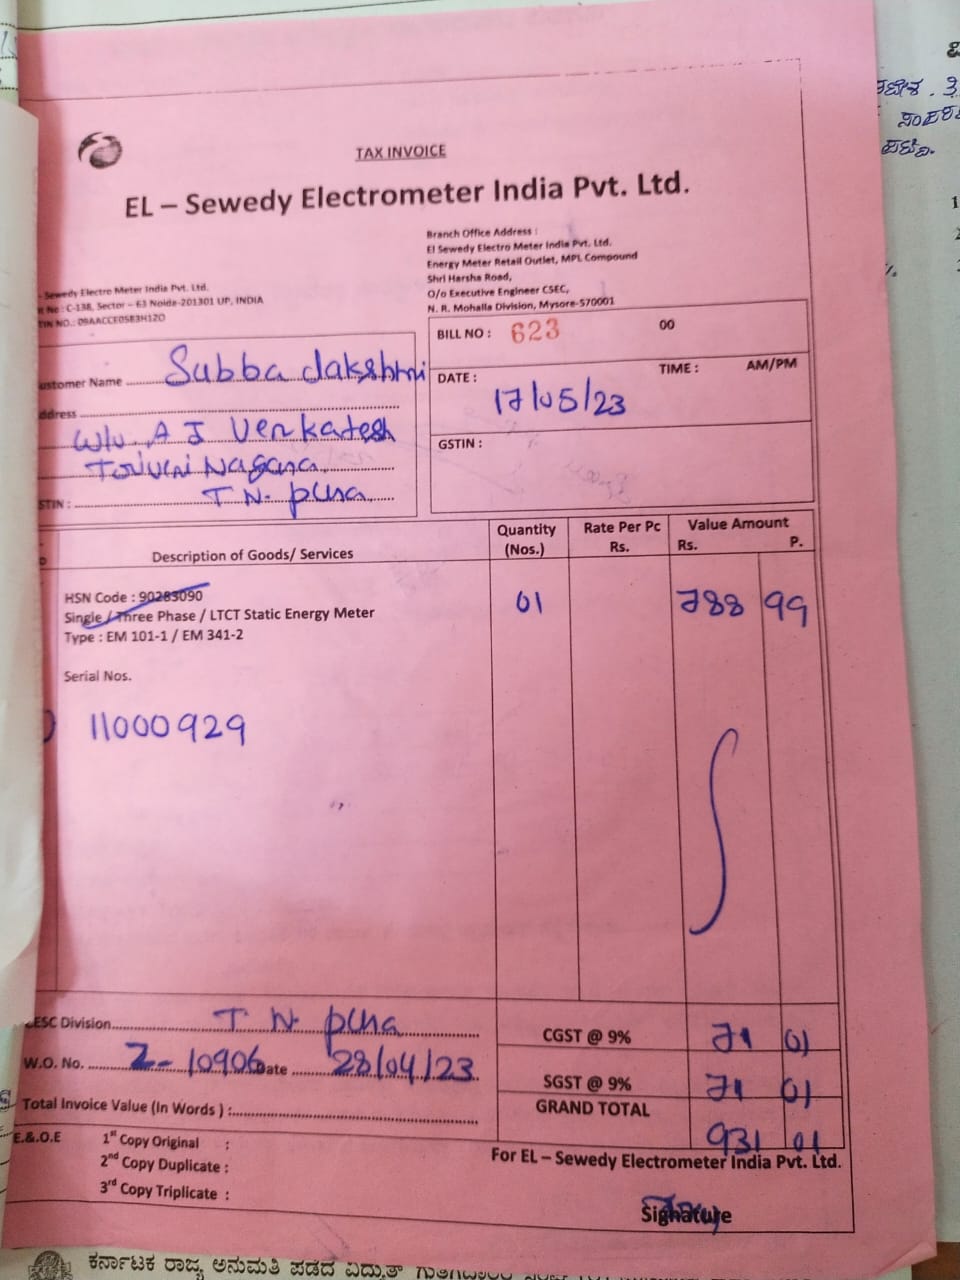 TAX INVOICE
EL – Sewedy Electrometer India Pvt. Ltd.
Branch Office Address :
El Sewedy Electro Meter India Pvt. Ltd.
Energy Meter Retail Outlet, MPL Compound
Shri Harsha Road,
O/o Executive Engineer CSEC,
N. R. Mohalla Division, Mysore-570001
Sewedy Electro Meter India Pvt. Ltd.
No : C-138, Sector – 63 Noida-201301 UP, INDIA
TIN NO.: 09AACCE0583H1ZO
BILL NO : 623 00
ustomer Name Subba
DATE : 17/05/23 TIME : AM/PM
ddress
W/o A J Venkatesh
Nagara
STIN : T N. pura
GSTIN :
Description of Goods/ Services
Quantity (Nos.)
Rate Per Pc Rs.
Value Amount Rs. P.
HSN Code : 90283090 01 788 99
Single / Three Phase / LTCT Static Energy Meter
Type : EM 101-1 / EM 341-2
Serial Nos.
11000929
ESC Division T. N. pura
CGST @ 9% 71 01
W.O. No. Z-10906 Date 28/04/23
SGST @ 9% 71 01
Total Invoice Value (In Words ) :
GRAND TOTAL 931 01
E.&.O.E 1st Copy Original :
2nd Copy Duplicate :
3rd Copy Triplicate :
For EL – Sewedy Electrometer India Pvt. Ltd.
Signature
ಕರ್ನಾಟಕ ರಾಜ್ಯ ಅನುಮತಿ ಪಡೆದ ವಿದ್ಯುತ್